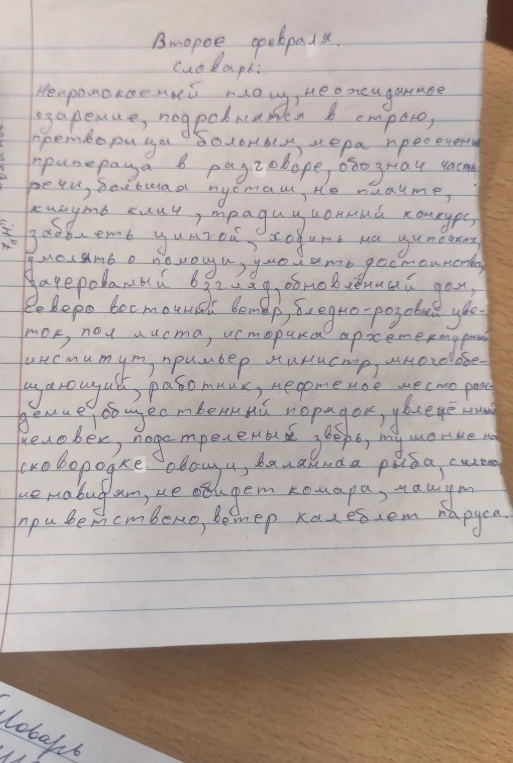 Второе февраля.
Словарь:
Непромокаемый плащ, неожиданное
озарение, подровнятся в строю,
претворица больным, мера пресечения
припераца в разговоре, обознач часть
речи, большая пусташ, но плачте,
кинуть клич, традиционный конкурс,
заболеть цингой, ходить на ципочках,
умолять о помощи, умолять достоинства,
зачерованый взгляд, обновлённый дом,
северо восточный ветер, бледно-розовый цве-
ток, пол листа, историка архетектурный
институт, примьер министр, многообе-
щающий, работник, нефтеное место рож-
дение, общественный порядок, увлечённый
человек, подстреленый зверь, тушоные на
сковородке овощи, вялянная рыба, сильно
ненавидят, не обидет комара, машут
приветствено, ветер калеблет паруса.
ловарь